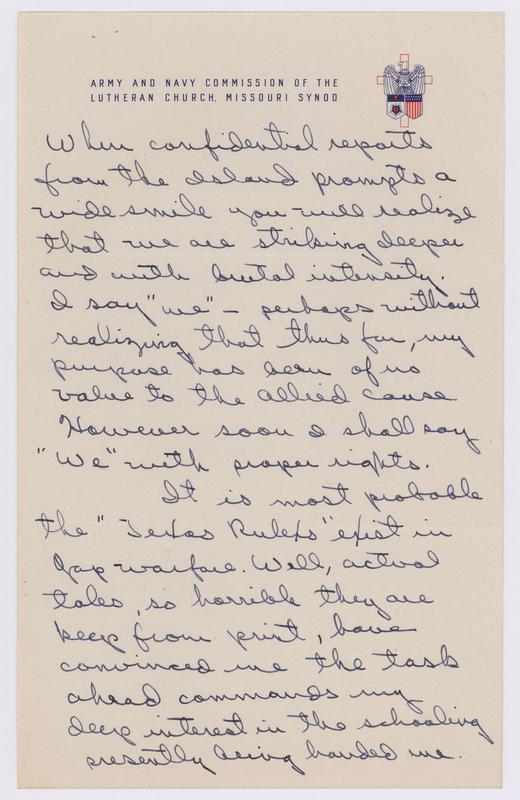 ARMY AND NAVY COMMISSION OF THE
LUTHERAN CHURCH, MISSOURI SYNOD
When confidential reports
from the Island prompts a
wide smile you will realize
that we are striking deeper
and with brutal intensity.
I say "we" – perhaps without
realizing that thus far, my
purpose has been of no
value to the allied cause.
However soon I shall say
"We" with proper rights.
It is most probable
the "Texas Rulers" exist in
Jap warfare. Well, actual
tales, so horrible they are
keep from print, have
convinced me the task
ahead commands my
deep interest in the schooling
presently being handed me.